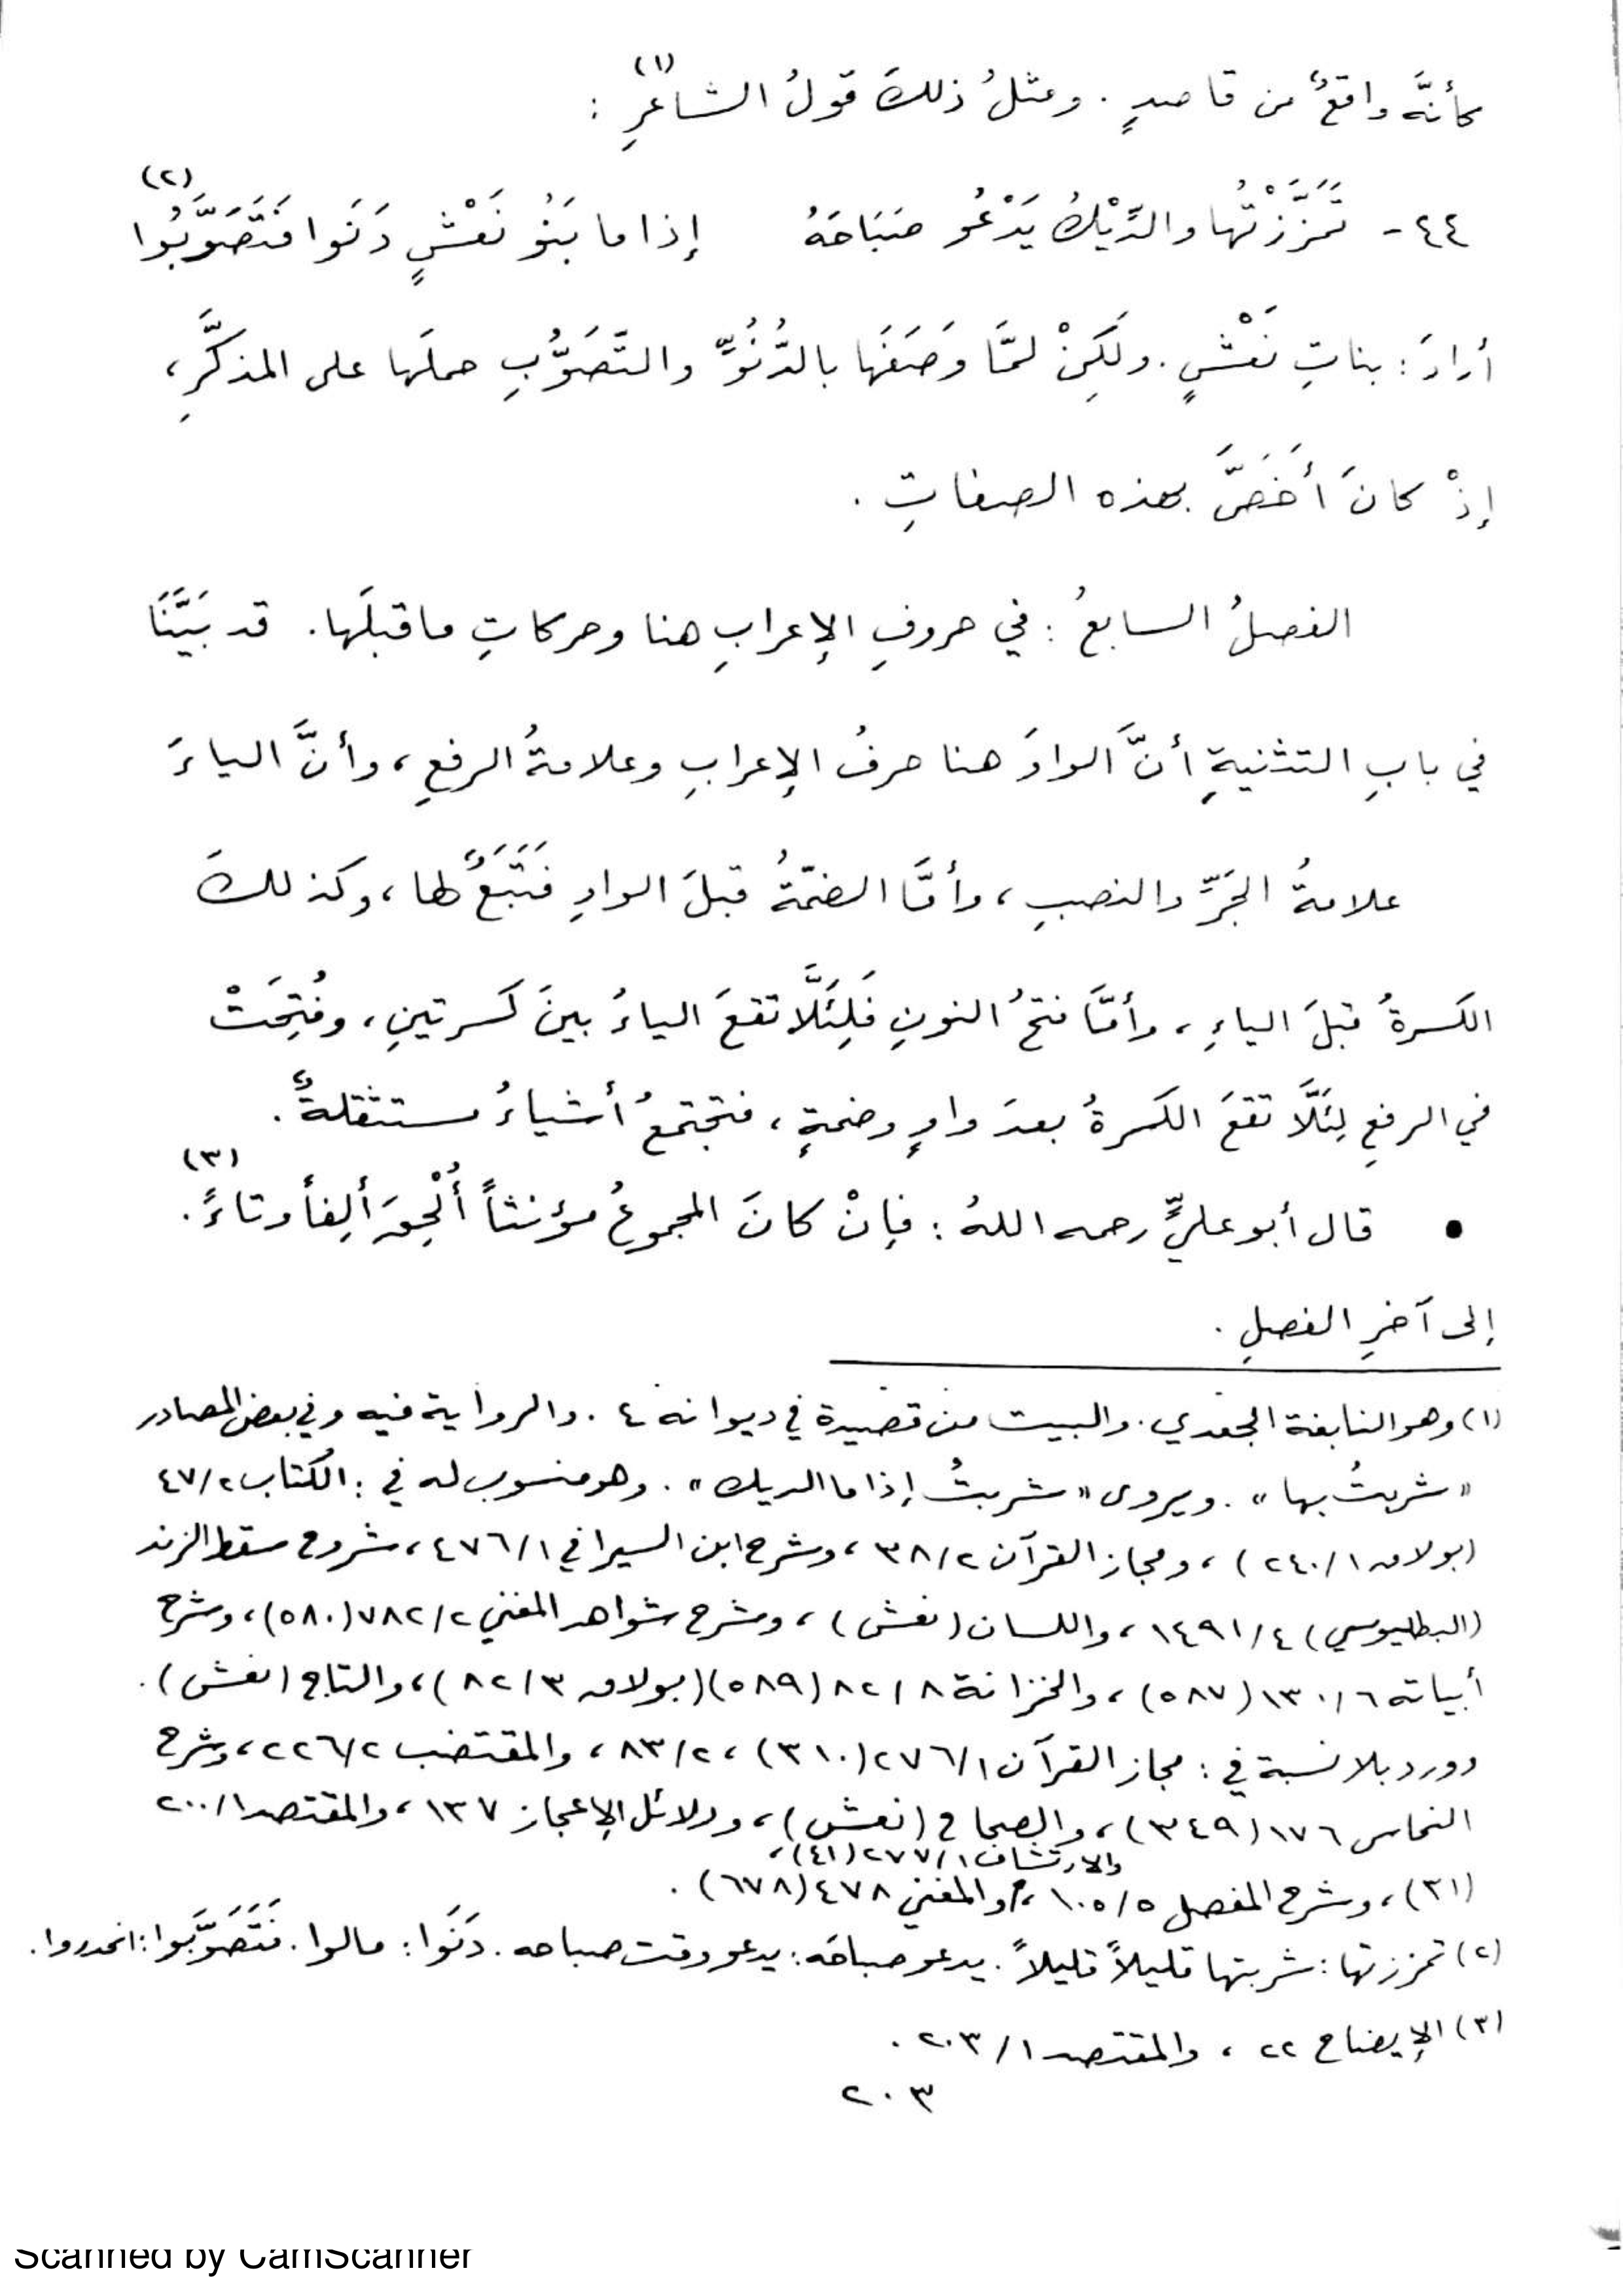 كأنَّه واقعٌ من قاصدٍ . ومثلُ ذلكَ قولُ الشاعرِ (١) :
٤٤ - تَمَزَّزْتُها والدِّيْكُ يَدْعُو صَبَاحَهُ إذا ما بَنُو نَعْشٍ دَنَوا فَتَصَوَّبُوا (٢)
أرادَ : بناتِ نَعْشٍ . ولَكِنْ لمَّا وَصَفَها بالدُّنُوِّ والتَّصَوُّبِ حملَها على المذكَّرِ ،
إذْ كانَ أَخَصَّ بهذه الصفاتِ .
الفصلُ السابعُ : في حروفِ الإعرابِ هنا وحركاتِ ما قبلَها . قد بَيَّنَّا
في بابِ التثنيةِ أنَّ الواوَ هنا حرفُ الإعرابِ وعلامةُ الرفعِ ، وأنَّ الياءَ
علامةُ الجَرِّ والنصبِ ، وأمَّا الضمّةُ قبلَ الواوِ فَتَبَعٌ لها ، وكذلكَ
الكَسرةُ قبلَ الياءِ ، وأمَّا فتحُ النونِ فَلِئَلَّا تقعَ الياءُ بينَ كَسرتينِ ، وفُتِحَتْ
في الرفعِ لِئَلَّا تقعَ الكسرةُ بعدَ واوٍ وضمةٍ ، فتجتمعُ أشياءُ مستثقلةٌ .
• قال أبو عليٍّ رحمه اللهُ : فإنْ كانَ المجموعُ مؤنثاً أُلْحِقَ ألِفاً وتاءً (٣) .
إلى آخرِ الفصلِ .
(١) وهو النابغة الجعدي . والبيت من قصيدة في ديوانه ٤ . والرواية فيه وفي بعض المصادر
« شربتُ بها » . ويروى « شربتُ إذا ما الديك » . وهو منسوب له في : الكتاب ٤٧/٢
(بولاق ٢٤٠/١) ، ومجاز القرآن ٣٨/٢ ، وشرح ابن السيرافي ٤٧٦/١ ، شروح سقط الزند
(البطليوسي) ١٤٩١/٤ ، واللسان (نعش) ، وشرح شواهد المغني ٧٨٢/٢ (٥٨٠) ، وشرح
أبياته ١٣٠/٦ (٥٨٧) ، والخزانة ٨٢/٨ (٥٨٩) (بولاق ٨٢/٣) ، والتاج (نعش) .
وورد بلا نسبة في : مجاز القرآن ٢٧٦/١ (٣١٠) ، ٨٣/٢ ، والمقتضب ٢٢٦/٢ ، وشرح
النحاس ١٧٦ (٣٤٩) ، والصحاح (نعش) ، ودلائل الإعجاز ١٣٧ ، والمقتصد ٢٠٠/١
والارتشاف ٢٧٧/١ (٤١) ،
(٣١) ، وشرح المفصل ١٠٥/٥ ، والمغني ٤٧٨ (٦٧٨) .
(٢) تمززتها : شربتها قليلاً قليلاً . يدعو صباحَه : يدعو وقت صباحه . دَنَوا : مالوا . فَتَصَوَّبَوا : انحدروا .
(٣) الإيضاح ٢٢ ، والمقتصد ٢٠٣/١ .
٢٠٣
Scanned by CamScanner